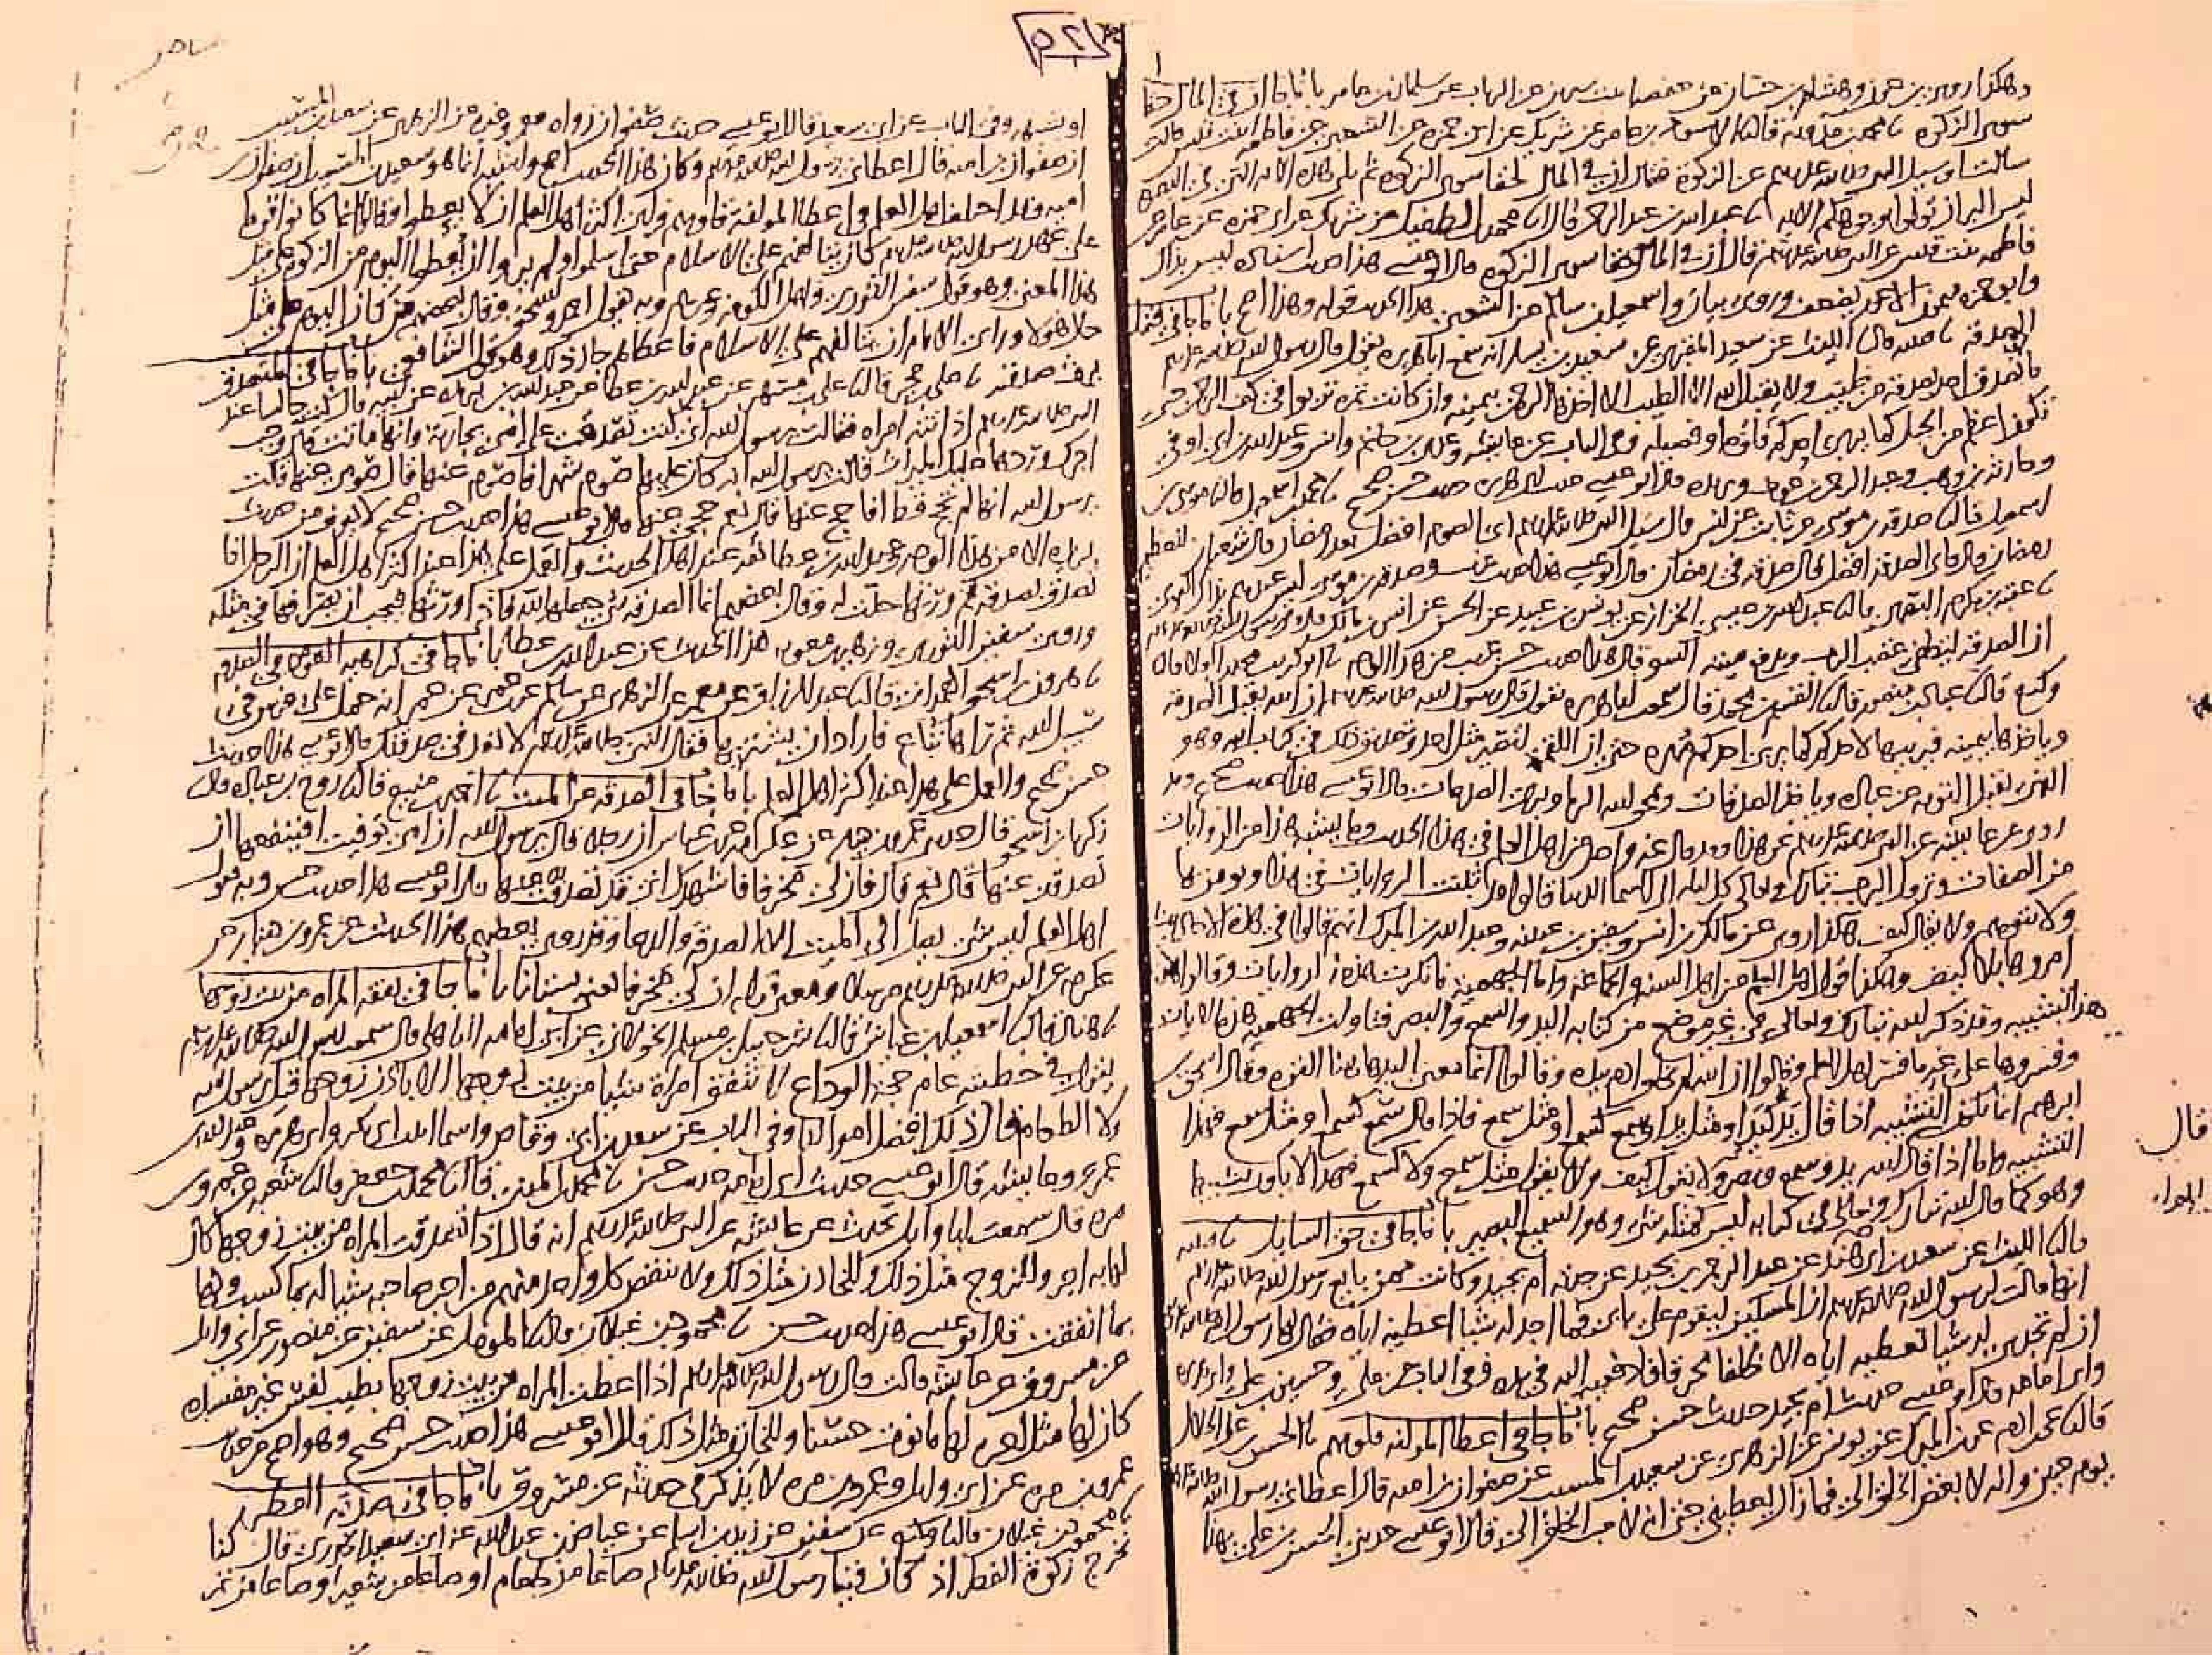 وهكذا روى بن عون وهشام بن حسان عن حفصة بنت سيرين عن الرباب عن سلمان بن عامر باب ما جا ان في المال حقا
سوى الزكوة نا محمد بن مدويه قال نا الاسود بن عامر عن شريك عن ابي حمزة عن الشعبي عن فاطمة بنت قيس قالت
سالت او سيل النبي صلى الله عليه وسلم عن الزكوة فقال ان في المال لحقا سوى الزكوة ثم تلى هذه الاية التي في البقرة
ليس البر ان تولوا وجوهكم الاية نا عبد الله بن عبد الرحمن قال انا محمد بن الطفيل عن شريك عن ابي حمزة عن عامر عن
فاطمة بنت قيس عن النبي صلى الله عليه وسلم قال ان في المال حقا سوى الزكوة قال ابو عيسى هذا حديث اسناده ليس بذاك
وابو حمزة ميمون الاعور يضعف وروى بيان واسمعيل بن سالم عن الشعبي هذا الحديث قوله وهذا اصح باب ما جا في فضل
الصدقة نا قتيبة قال نا الليث عن سعيد المقبري عن سعيد بن يسار انه سمع ابا هريرة يقول قال رسول الله صلى الله عليه وسلم
ما تصدق احد بصدقة من طيب ولا يقبل الله الا الطيب الا اخذها الرحمن بيمينه وان كانت تمرة تربوا في كف الرحمن حتى
تكون اعظم من الجبل كما يربي احدكم فلوه او فصيله وفي الباب عن عايشة وعدي بن حاتم وانس وعبد الله بن ابي اوفى
وحارثة بن وهب وعبد الرحمن بن عوف وبريدة قال ابو عيسى حديث ابي هريرة حديث حسن صحيح نا محمد بن اسمعيل قال نا موسى بن
اسمعيل قال نا صدقة بن موسى عن ثابت عن انس قال سئل النبي صلى الله عليه وسلم اي الصوم افضل بعد رمضان قال شعبان لتعظيم
رمضان قال فاي الصدقة افضل قال صدقة في رمضان قال ابو عيسى هذا حديث غريب وصدقة بن موسى ليس عندهم بذاك القوي
نا عقبة بن مكرم البصري قال نا عبد الله بن عيسى الخزاز عن يونس بن عبيد عن الحسن عن انس بن مالك قال قال رسول الله صلى الله عليه وسلم
ان الصدقة لتطفي غضب الرب وتدفع ميتة السو قال هذا حديث حسن غريب من هذا الوجه نا ابو كريب محمد بن العلا قال نا
وكيع قال نا عباد بن منصور قال نا القسم بن محمد قال سمعت ابا هريرة يقول قال رسول الله صلى الله عليه وسلم ان الله يقبل الصدقة
وياخذها بيمينه فيربيها لاحدكم كما يربي احدكم مهره حتى ان اللقمة لتصير مثل احد وتصديق ذلك في كتاب الله وهو
الذي يقبل التوبة عن عباده وياخذ الصدقات ويمحو الله الربا ويربي الصدقات قال ابو عيسى هذا حديث صحيح وقد
روي عن عايشة عن النبي صلى الله عليه وسلم نحو هذا وقد قال غير واحد من اهل العلم في هذا الحديث وما يشبه هذا من الروايات
من الصفات ونزول الرب تبارك وتعالى كل ليلة الى السما الدنيا قالوا قد تثبت الروايات في هذا ويومن بها
ولا يتوهم ولا يقال كيف هكذا روي عن مالك بن انس وسفين بن عيينة وعبد الله بن المبرك انهم قالوا في هذه الاحاديث
امروها بلا كيف وهكذا قول اهل العلم من اهل السنة والجماعة واما الجهمية فانكرت هذه الروايات وقالوا
هذا تشبيه وقد ذكر الله تبارك وتعالى في غير موضع من كتابه اليد والسمع والبصر فتاولت الجهمية هذه الايات
وفسروها على غير ما فسر اهل العلم وقالوا ان الله لم يخلق ادم بيده وقالوا انما معنى اليد هاهنا القوة وقال اسحق بن
ابرهيم انما يكون التشبيه اذا قال يد كيد او مثل يد او سمع كسمع او مثل سمع فاذا قال سمع كسمع او مثل سمع فهذا
التشبيه واما اذا قال كما قال الله يد وسمع وبصر ولا يقول كيف ولا يقول مثل سمع ولا كسمع فهذا لا يكون تشبيها
وهو كما قال الله تبارك وتعالى في كتابه ليس كمثله شي وهو السميع البصير باب ما جا في حق السايل نا قتيبة
قال نا الليث عن سعيد بن ابي هند عن عبد الرحمن بن بجيد عن جدته ام بجيد وكانت ممن بايع رسول الله صلى الله عليه وسلم
انها قالت لرسول الله صلى الله عليه وسلم ان المسكين ليقوم على بابي فما اجد له شيا اعطيه اياه فقال لها رسول الله صلى الله عليه وسلم
ان لم تجدي له شيا تعطيه اياه الا ظلفا محرقا فادفعيه اليه في يده وفي الباب عن علي وحسين بن علي وابي هريرة
وابي امامة قال ابو عيسى حديث ام بجيد حديث حسن صحيح باب ما جا في اعطا المولفة قلوبهم نا الحسن بن علي الخلال
قال نا يحيى بن ادم عن بن المبرك عن يونس عن الزهري عن سعيد بن المسيب عن صفوان بن امية قال اعطاني رسول الله صلى الله عليه وسلم
يوم حنين وانه لابغض الخلق الي فما زال يعطيني حتى انه لاحب الخلق الي قال ابو عيسى حدثني الحسن بن علي بهذا
قال
او شبهه وفي الباب عن ابي سعيد قال ابو عيسى حديث صفوان رواه معمر وغيره عن الزهري عن سعيد بن المسيب
ان صفوان بن امية قال اعطاني رسول الله صلى الله عليه وسلم وكان هذا الحديث اصح واشبه انما هو سعيد بن المسيب ان صفوان بن
امية وقد اختلف اهل العلم في اعطا المولفة قلوبهم فراى اكثر اهل العلم ان لا يعطوا وقالوا انما كانوا قوما
على عهد رسول الله صلى الله عليه وسلم كان يتالفهم على الاسلام حتى اسلموا ولم يروا ان يعطوا اليوم من الزكوة على مثل
هذا المعنى وهو قول سفين الثوري واهل الكوفة وغيرهم وبه يقول احمد واسحق وقال بعضهم من كان اليوم على مثل
حال هولا وراى الامام ان يتالفهم على الاسلام فاعطاهم جاز ذلك وهو قول الشافعي باب ما جا في المتصدق
يرث صدقته نا علي بن حجر قال نا علي بن مسهر عن عبد الله بن عطا عن عبد الله بن بريدة عن ابيه قال كنت جالسا عند
النبي صلى الله عليه وسلم اذ اتته امراة فقالت يرسول الله اني كنت تصدقت على امي بجارية وانها ماتت قال وجب
اجرك وردها عليك الميراث قالت يرسول الله انه كان عليها صوم شهر افاصوم عنها قال صومي عنها قالت
يرسول الله انها لم تحج قط افاحج عنها قال نعم حجي عنها قال ابو عيسى هذا حديث حسن صحيح لا يعرف من حديث
بريدة الا من هذا الوجه وعبد الله بن عطا ثقة عند اهل الحديث والعمل على هذا عند اكثر اهل العلم ان الرجل اذا
تصدق بصدقة ثم ورثها حلت له وقال بعضهم انما الصدقة شي جعلها لله فاذا ورثها فيجب ان يصرفها في مثله
وروى سفين الثوري وزهير بن معوية هذا الحديث عن عبد الله بن عطا باب ما جا في كراهية العود في الصدقة
نا هرون بن اسحق الهمداني قال نا عبد الرزاق عن معمر عن الزهري عن سالم عن بن عمر عن عمر انه حمل على فرس في
سبيل الله ثم راها تباع فاراد ان يشتريها فقال النبي صلى الله عليه وسلم لا تعد في صدقتك قال ابو عيسى هذا حديث
حسن صحيح والعمل على هذا عند اكثر اهل العلم باب ما جا في الصدقة عن الميت نا احمد بن منيع قال نا روح بن عبادة قال نا
زكريا بن اسحق قال حدثني عمرو بن دينار عن عكرمة عن بن عباس ان رجلا قال يرسول الله ان امي توفيت افينفعها ان
تصدقت عنها قال نعم قال فان لي مخرفا فاشهدك اني قد تصدقت به عنها قال ابو عيسى هذا حديث حسن وبه يقول
اهل العلم ليس شي يصل الى الميت الا الصدقة والدعا وقد روى بعضهم هذا الحديث عن عمرو بن دينار عن
عكرمة عن النبي صلى الله عليه وسلم مرسلا ومعنى قوله ان لي مخرفا يعني بستانا باب ما جا في نفقة المراة من بيت زوجها
نا هناد قال نا اسمعيل بن عياش قال نا شرحبيل بن مسلم الخولاني عن ابي امامة الباهلي قال سمعت رسول الله صلى الله عليه وسلم
يقول في خطبته عام حجة الوداع لا تنفق امراة شيا من بيت زوجها الا باذن زوجها قيل يرسول الله
ولا الطعام قال ذلك افضل اموالنا وفي الباب عن سعد بن ابي وقاص واسما ابنت ابي بكر وابي هريرة وعبد الله بن
عمرو وعايشة قال ابو عيسى حديث ابي امامة حديث حسن نا محمد بن المثنى قال نا محمد بن جعفر قال نا شعبة عن عمرو بن
مرة قال سمعت ابا وايل يحدث عن عايشة عن النبي صلى الله عليه وسلم انه قال اذا تصدقت المراة من بيت زوجها كان
لها به اجر وللزوج مثل ذلك وللخازن مثل ذلك ولا ينقص كل واحد منهم من اجر صاحبه شيا له بما كسب ولها
بما انفقت قال ابو عيسى هذا حديث حسن نا محمود بن غيلان قال نا المومل عن سفين عن منصور عن ابي وايل
عن مسروق عن عايشة قالت قال رسول الله صلى الله عليه وسلم اذا اعطت المراة من بيت زوجها بطيب نفس غير مفسدة
كان لها مثل اجره لها ما نوت حسنا وللخازن مثل ذلك قال ابو عيسى هذا حديث حسن صحيح وهو اصح من حديث
عمرو بن مرة عن ابي وايل وعمرو بن مرة لا يذكر في حديثه عن مسروق باب ما جا في صدقة الفطر
نا محمود بن غيلان قال نا وكيع عن سفين عن زيد بن اسلم عن عياض بن عبد الله عن ابي سعيد الخدري قال كنا
نخرج زكوة الفطر اذ كان فينا رسول الله صلى الله عليه وسلم صاعا من طعام او صاعا من شعير او صاعا من تمر